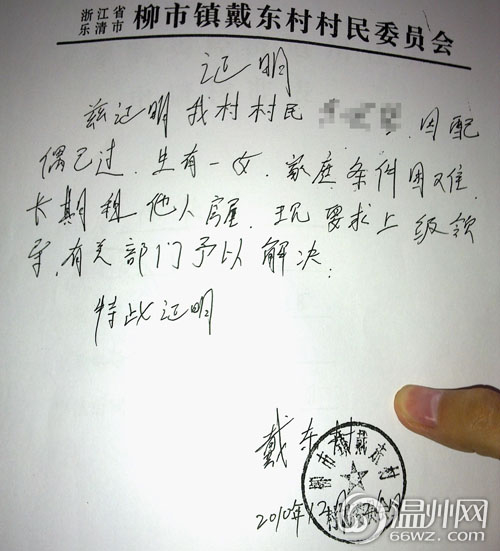 浙江省
乐清市 柳市镇戴东村村民委员会
证明
兹证明我村村民 因配
偶已过.生有一女.家庭条件困难.
长期租他人房屋.现要求上级领
导.有关部门予以解决.
特此证明
戴东村
柳市镇戴东村
2010年12月
温州网
66WZ.COM